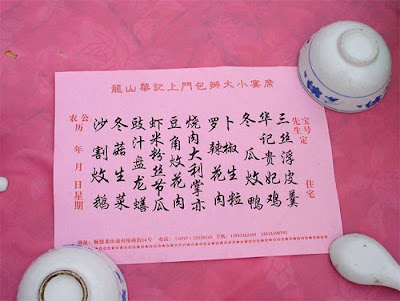 龍山華記上門包辦大小宴席
宝号
先生 定
住宅
三丝浮皮羹
华记贵妃鸡
冬瓜炆鸭
罗卜辣椒花生肉粒
烧肉大利掌亦
豆角炆花肉
虾米粉丝节瓜
豉汁盘龙鳝
冬菇生菜
沙割炆鹅
公历
农历 年 月 日 星期